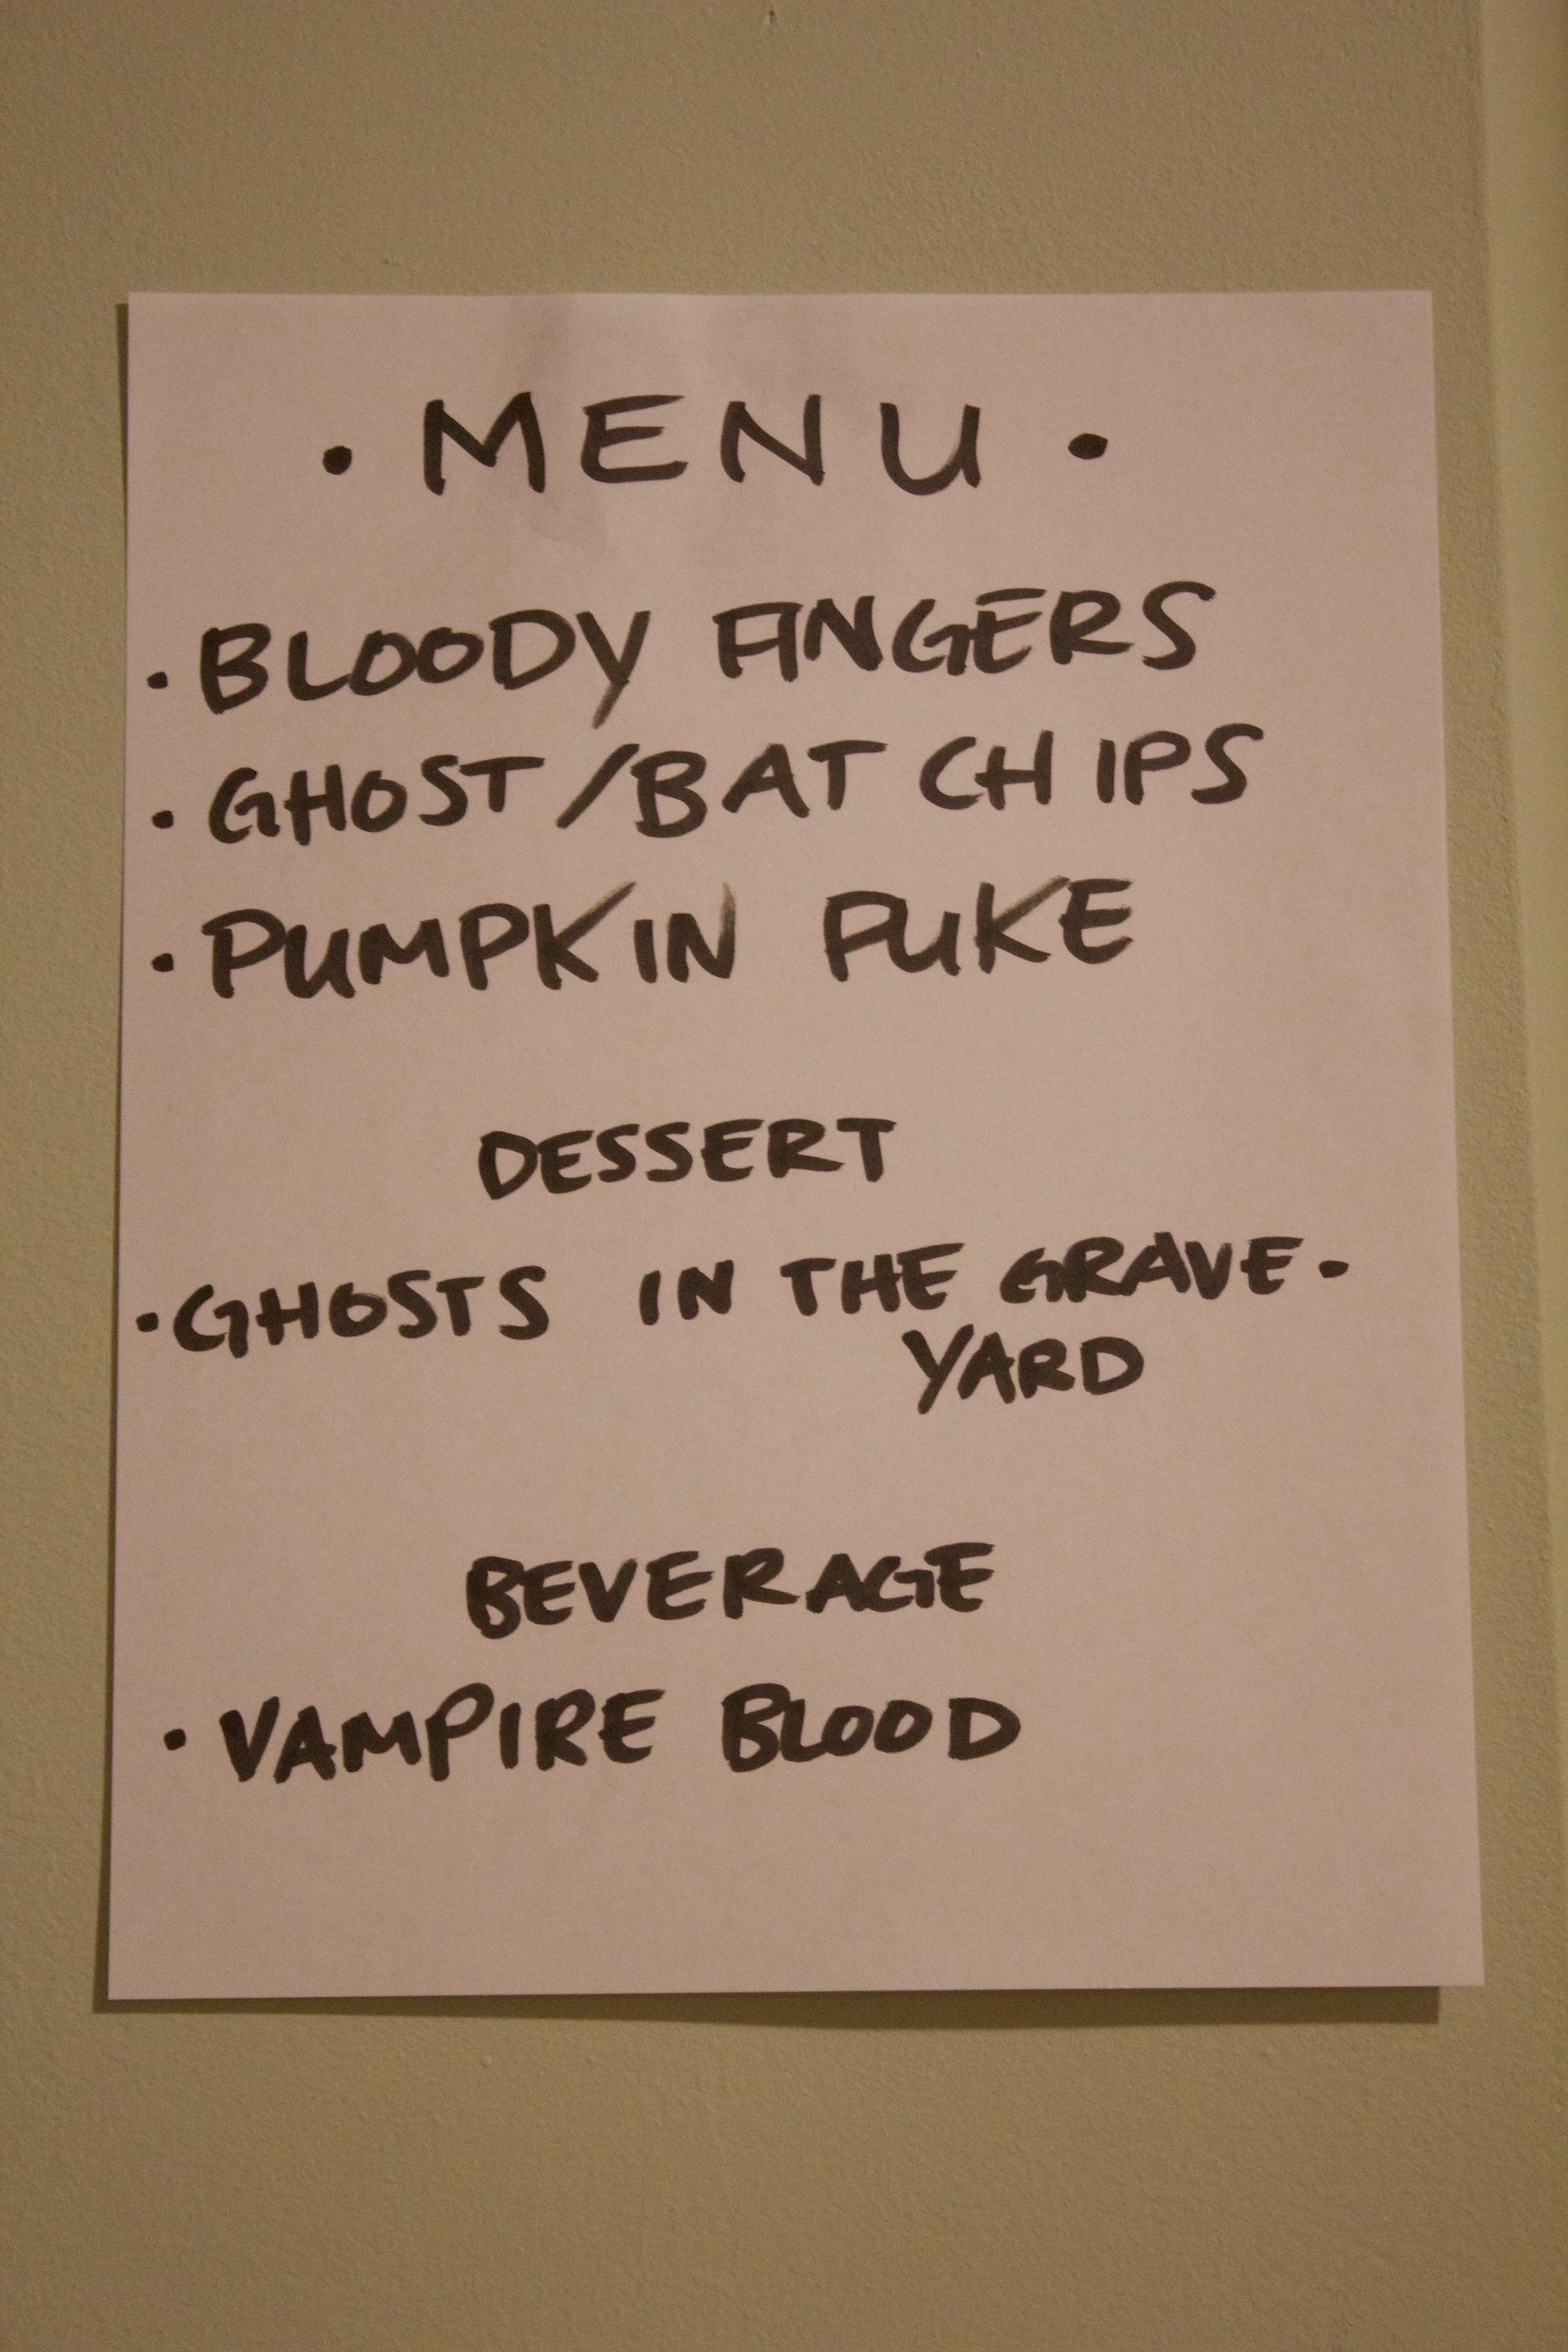 · MENU ·
· BLOODY FINGERS
· GHOST/BAT CHIPS
· PUMPKIN PUKE
DESSERT
· GHOSTS IN THE GRAVE-
YARD
BEVERAGE
· VAMPIRE BLOOD